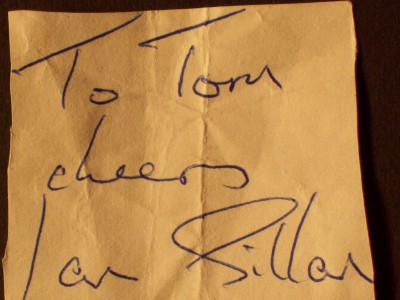 To Tom
cheers
Ian Gillan